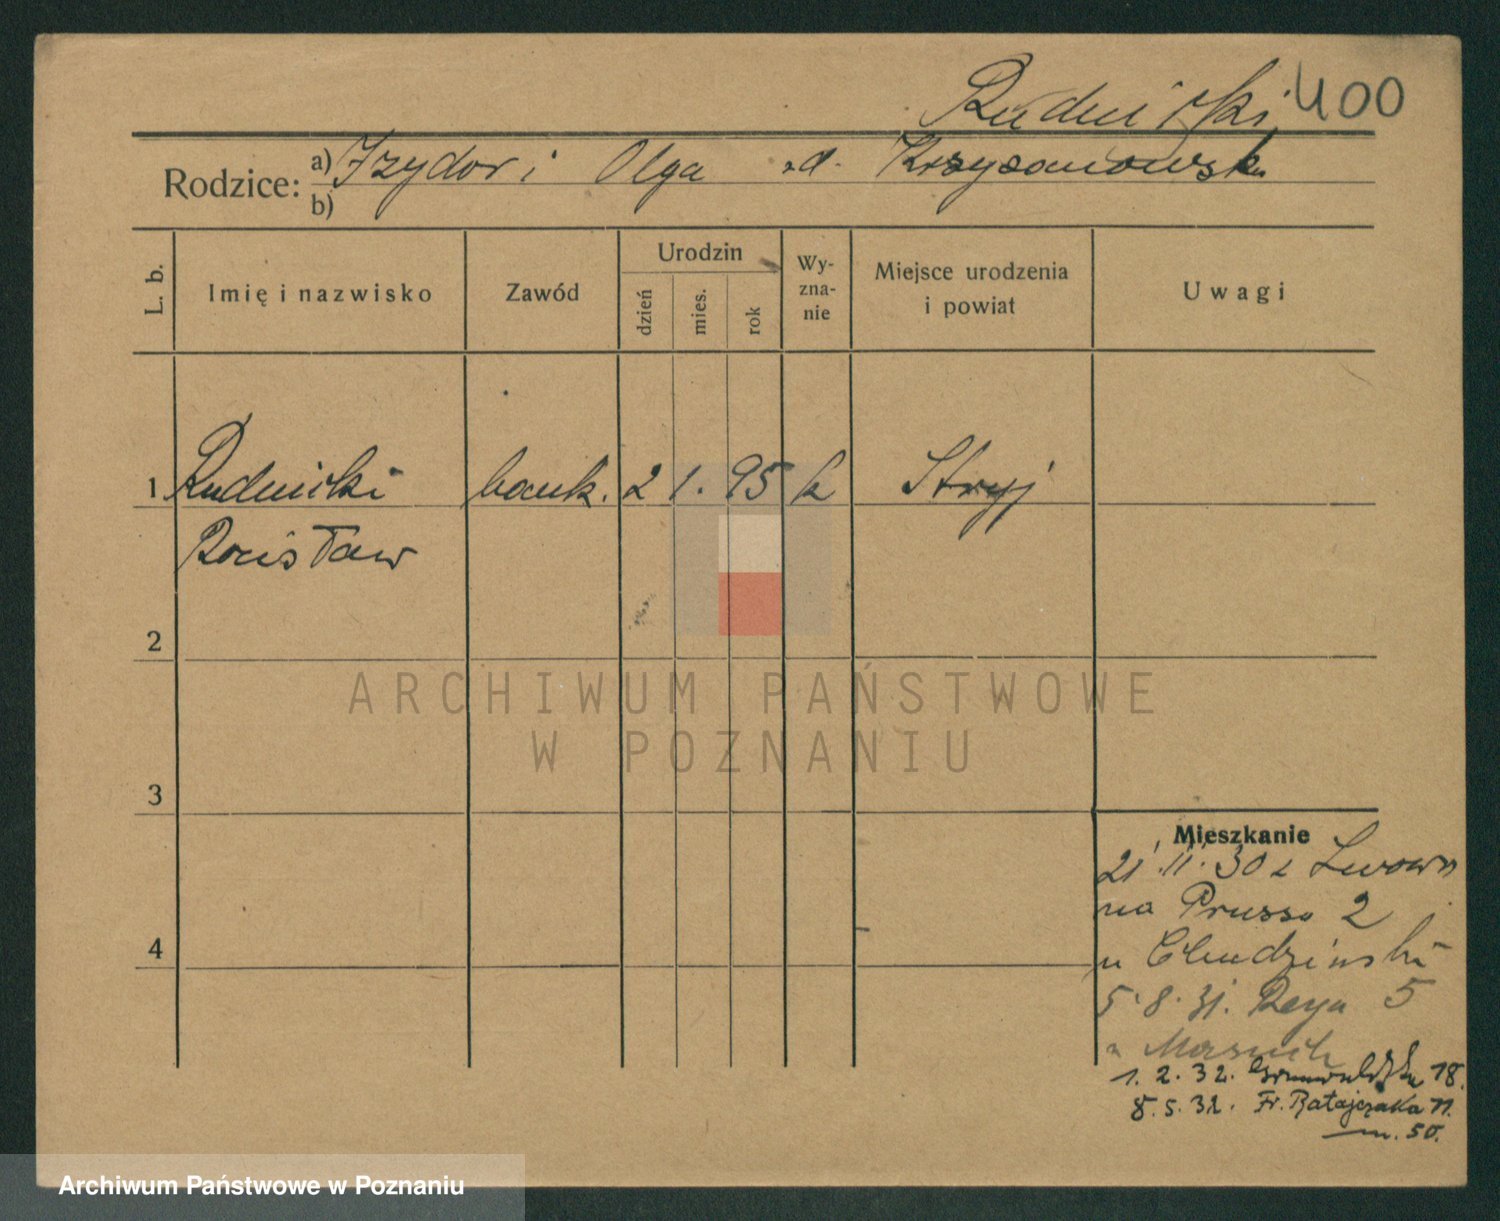 Rudnicki 400
Rodzice: a) Izydor i Olga z d. Krzyżanowska
b)
L. b.
Imię i nazwisko
Zawód
Urodzin
dzień
mies.
rok
Wy-
zna-
nie
Miejsce urodzenia
i powiat
Uwagi
1 Rudnicki bank. 2 1. 95 k Stryj
2
3
4
ARCHIWUM PAŃSTWOWE
W POZNANIU
Mieszkanie
21.11.30 z Lwowa
na Prussa 2
u Chudziński
5.8.31. Reya 5
1.2.32. Grunwaldzka 18.
8.5.32. Fr. Ratajczaka 11.
m. 50.
Archiwum Państwowe w Poznaniu